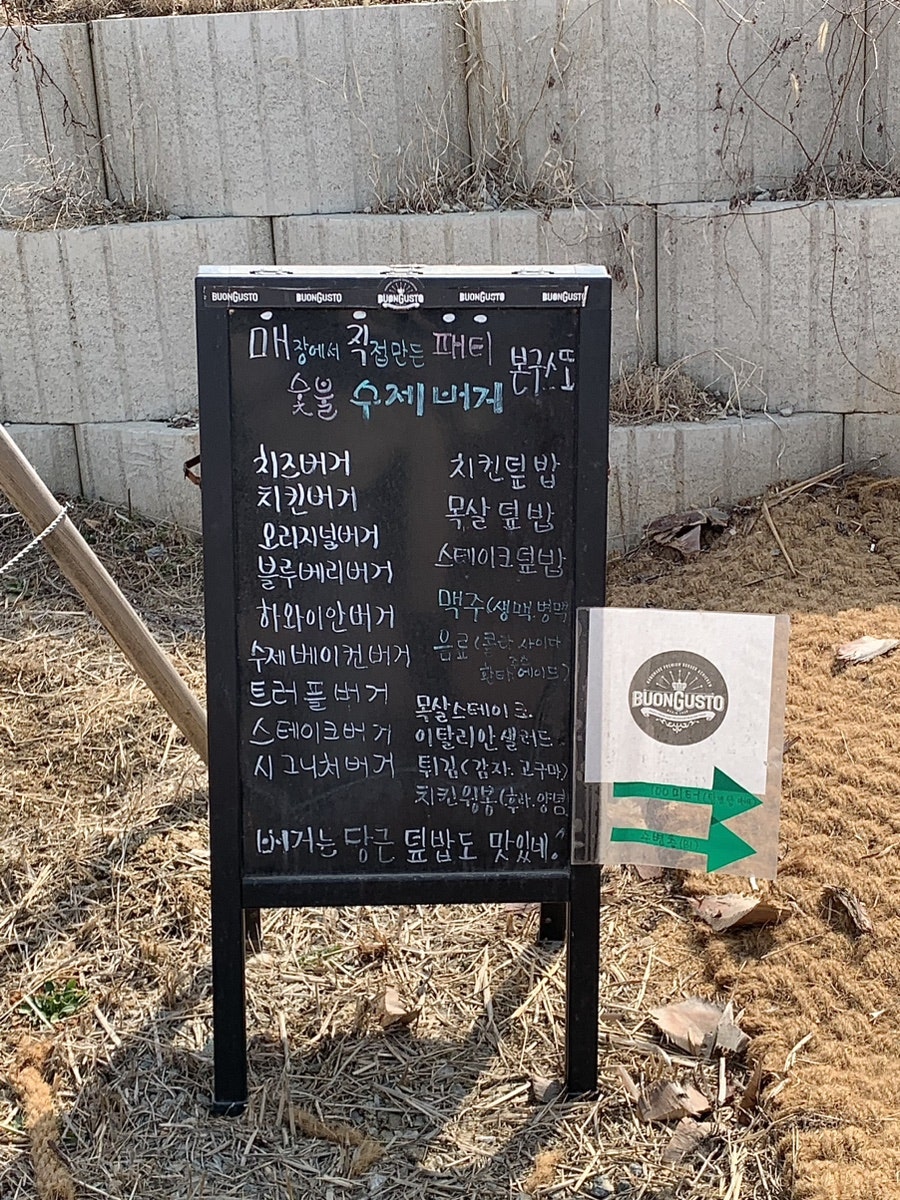 BUONGUSTO BUONGUSTO BUONGUSTO BUONGUSTO BUONGUSTO
매장에서 직접만든 패티
본구스또
숯불 수제버거
치즈버거
치킨버거
오리지널버거
블루베리버거
하와이안버거
수제베이컨버거
트러플버거
스테이크버거
시그니처버거
치킨덮밥
목살덮밥
스테이크덮밥
맥주(생맥,병맥
음료(콜라,사이다
쥬스
환타,에이드)
목살스테이크
이탈리안샐러드
튀김(감자.고구마)
치킨윙봉(후라.양념
버거는 당근 덮밥도 맛있네.
BUONGUSTO
100미터